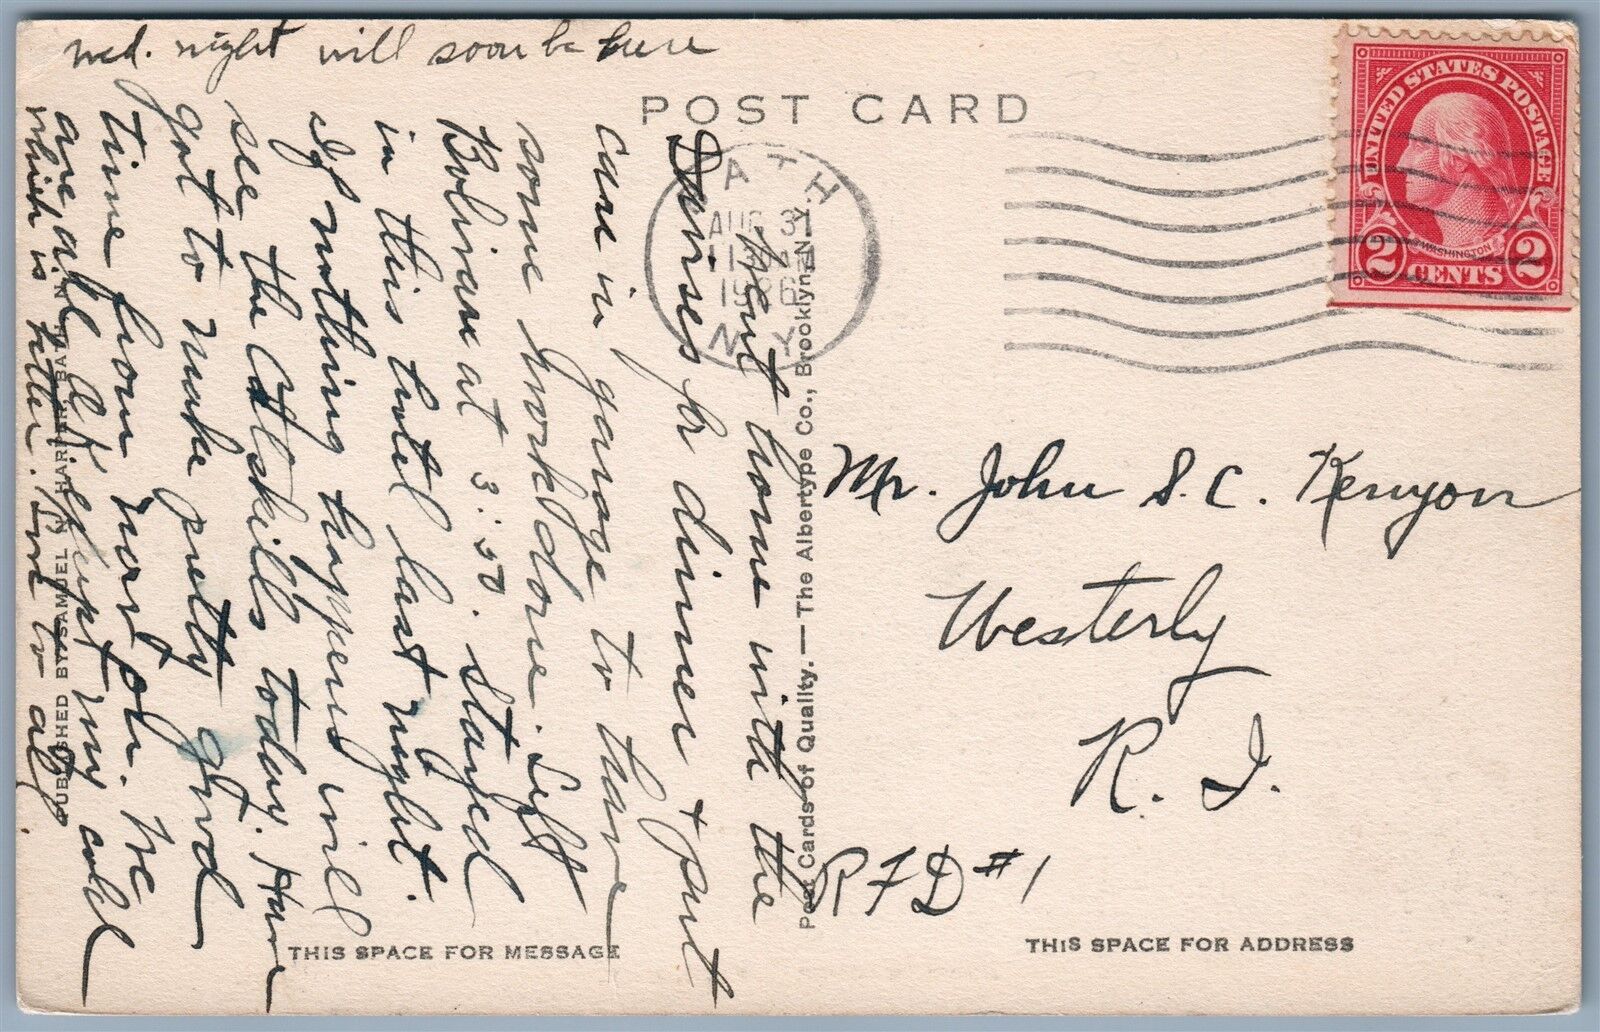 Wed. night will soon be here
POST CARD
UNITED STATES POSTAGE
WASHINGTON
2 CENTS 2
BATH
AUG 31
1926
N.Y.
Went home with the
Dorses for dinner + put
care in garage to have
some work done. Left
Bolivar at 3:50. Stayed
in this hotel last night.
If nothing happens will
see the Catskills today. Have
got to make pretty good
time from now on. We
are all O.K. except my cold
which is better. Love to all.
PUBLISHED BY SAMUEL N. HARPER, BATH, N.Y.
Post Cards of Quality. — The Albertype Co., Brooklyn, N.Y.
Mr. John S. C. Kenyon
Westerly
R. I.
RFD #1
THIS SPACE FOR MESSAGE
THIS SPACE FOR ADDRESS